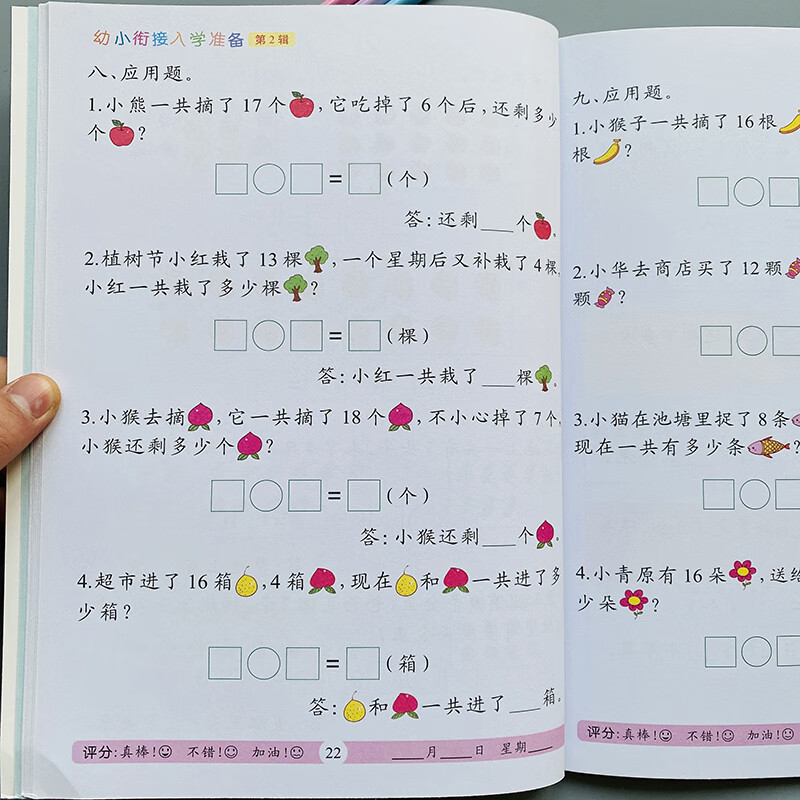 幼小衔接入学准备 第2辑
八、应用题。
1.小熊一共摘了17个,它吃掉了6个后,还剩多少
个?
=(个)
答:还剩___个。
2.植树节小红栽了13棵,一个星期后又补栽了4棵,
小红一共栽了多少棵?
=(棵)
答:小红一共栽了___棵。
3.小猴去摘,它一共摘了18个,不小心掉了7个,
小猴还剩多少个?
=(个)
答:小猴还剩___个。
4.超市进了16箱,4箱,现在和一共进了多
少箱?
=(箱)
答:和一共进了___箱。
评分:真棒! 不错! 加油! 22 ___月___日 星期___
九、应用题。
1.小猴子一共摘了16根
根?
2.小华去商店买了12颗
颗?
3.小猫在池塘里捉了8条
现在一共有多少条?
4.小青原有16朵,送给
少朵?
评分:真棒! 不错! 加油!